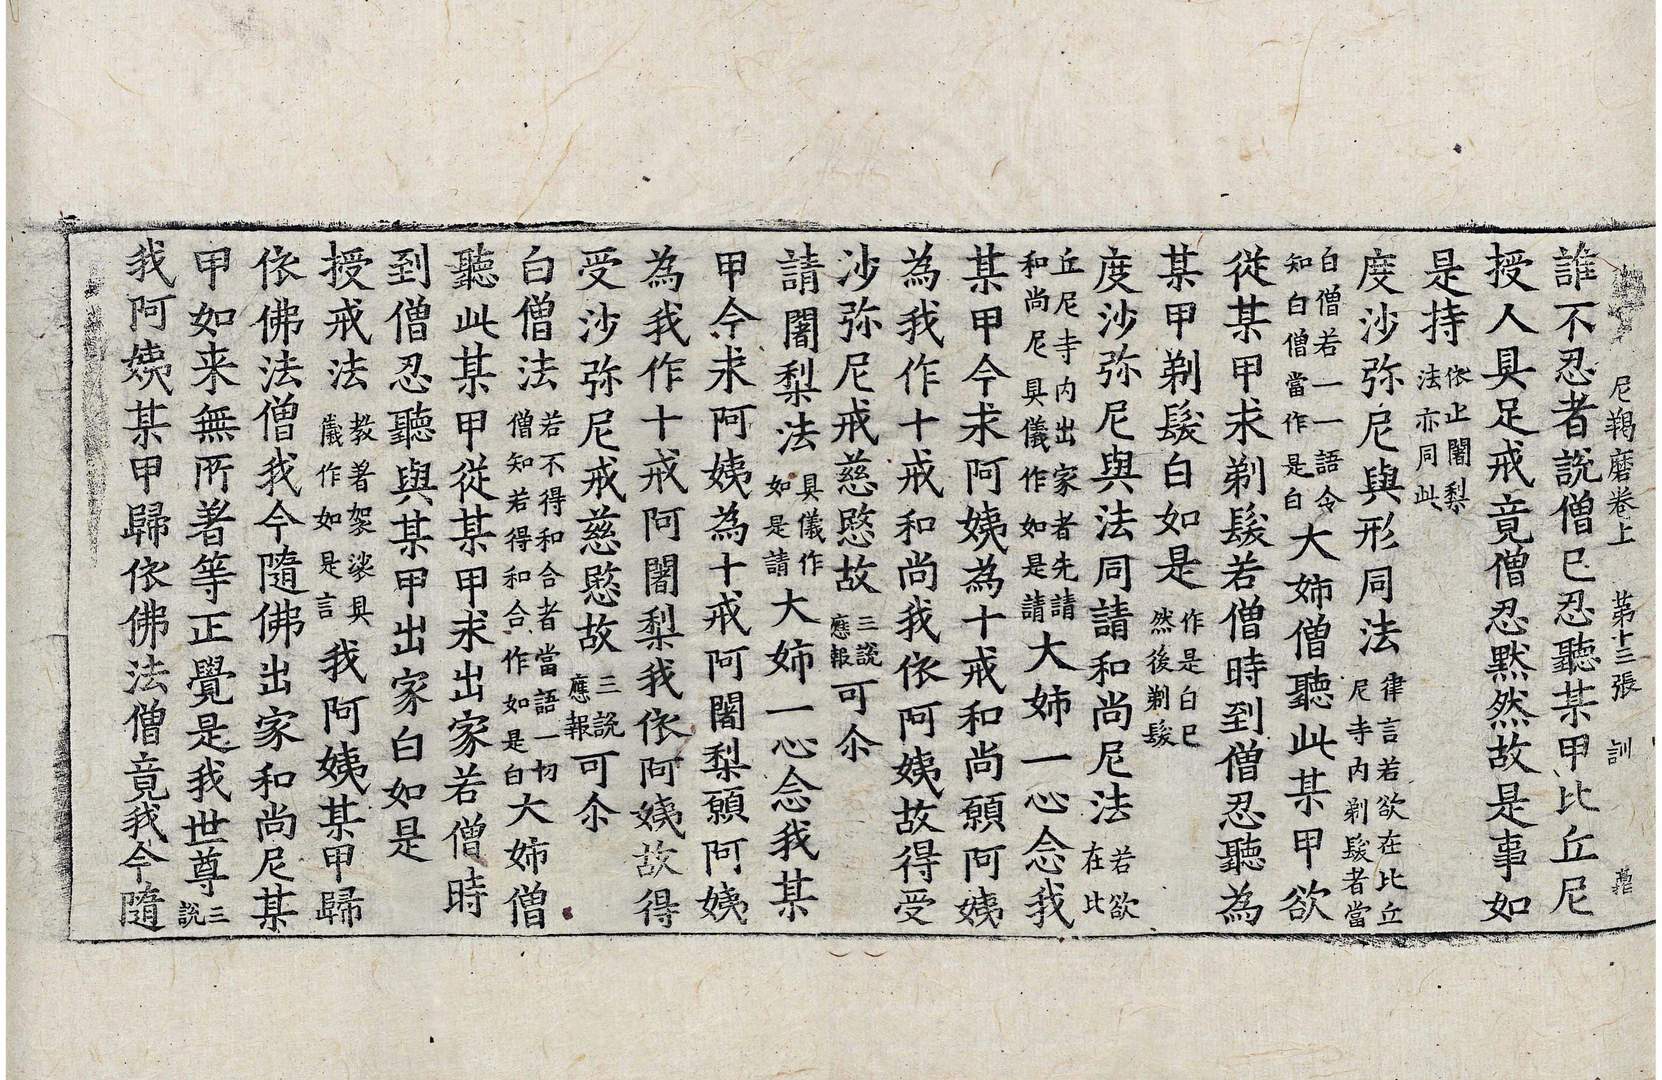 尼羯磨卷上　第十三張　訓
誰不忍者說僧已忍聽某甲比丘尼
授人具足戒竟僧忍默然故是事如
是持依止闍梨法亦同此
度沙弥尼與形同法律言若欲在比丘尼寺內剃髮者當
白僧若一一語令知白僧當作是白大姉僧聽此某甲欲
從某甲求剃髮若僧時到僧忍聽為
某甲剃髮白如是作是白已然後剃髮
度沙弥尼與法同請和尚尼法若欲在比
丘尼寺內出家者先請和尚尼具儀作如是請大姉一心念我
某甲今求阿姨為十戒和尚願阿姨
為我作十戒和尚我依阿姨故得受
沙弥尼戒慈愍故三說應報可尒
請闍梨法具儀作如是請大姉一心念我某
甲今求阿姨為十戒阿闍梨願阿姨
為我作十戒阿闍梨我依阿姨故得
受沙弥尼戒慈愍故三說應報可尒
白僧法若不得和合者當語一切僧知若得和合作如是白大姉僧
聽此某甲從某甲求出家若僧時
到僧忍聽與某甲出家白如是
授戒法教著袈裟具儀作如是言我阿姨某甲歸
依佛法僧我今隨佛出家和尚尼某
甲如来無所著等正覺是我世尊三說
我阿姨某甲歸依佛法僧竟我今隨